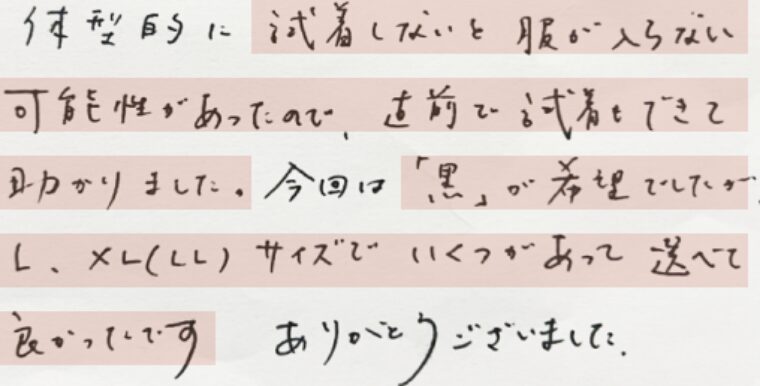 体型的に試着しないと服が入らない
可能性があったので、直前で試着もできて
助かりました。今回は「黒」が希望でしたが、
L、XL(LL)サイズでいくつかあって選べて
良かったです ありがとうございました。